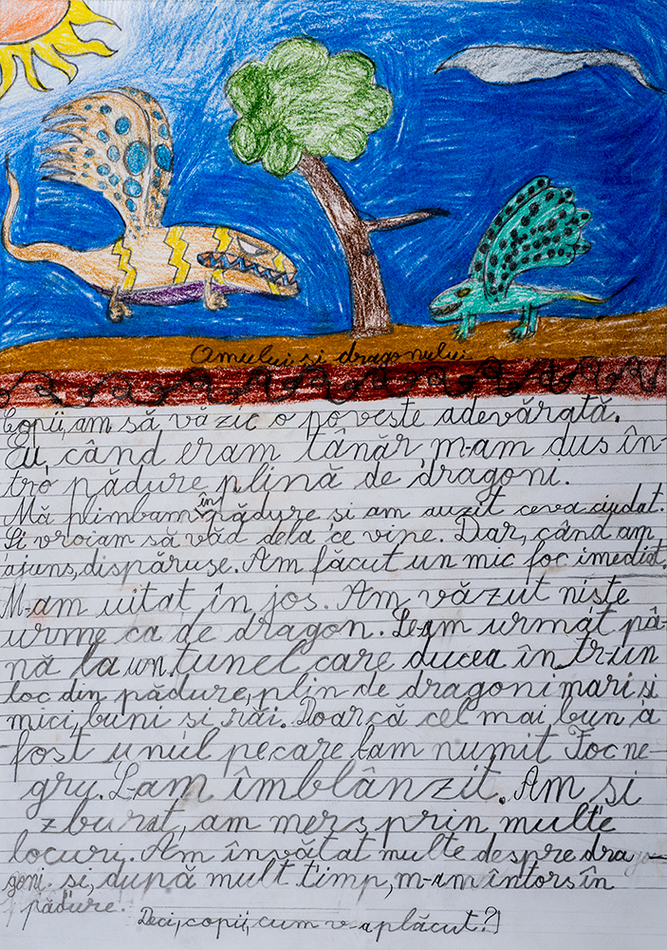 Amului si dragonului
Copii, am să vă zic o poveste adevărată.
Eu, când eram tânăr, m-am dus în-
tro pădure plină de dragoni.
Mă plimbam în pădure si am auzit ceva ciudat.
Si vroiam să văd dela ce vine. Dar, când am
ajuns, dispăruse. Am făcut un mic foc imediat.
M-am uitat în jos. Am văzut niste
urme ca de dragon. Le-am urmat pâ-
nă la un tunel care ducea în trun
loc din pădure, plin de dragoni mari si
mici, buni si răi. Doarcă cel mai bun a
fost unul pe care lam numit Foc ne-
gru. L-am îmblânzit. Am si
zburat, am mers prin multe
locuri. Am învătat multe despre dra-
goni si, după mult timp, m-am întors în
pădure.
Deci, copii, cum v-a plăcut?